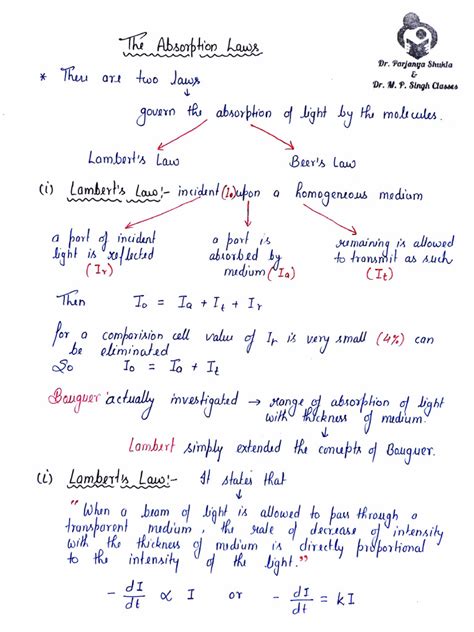 The Absorption Laws
Dr. Parjanya Shukla
&
Dr. M. P. Singh Classes
* There are two laws
↓
govern the absorption of light by the molecules.
Lambert's Law Beer's Law
(i) Lambert's Law:- incident (I₀) upon a homogeneous medium
a part of incident
light is reflected
(Ir)
a part is
absorbed by
medium (Ia)
remaining is allowed
to transmit as such
(It)
Then I₀ = Ia + It + Ir
for a comparision cell value of Ir is very small (4%) can
be eliminated
So I₀ = Ia + It
Bouguer actually investigated → range of absorption of light
with thickness of medium.
↓
Lambert simply extended the concepts of Bouguer.
(i) Lambert's Law:- It states that
↓
"When a beam of light is allowed to pass through a
transparent medium, the rate of decrease of intensity
with the thickness of medium is directly proportional
to the intensity of the light."
- dI/dt ∝ I or - dI/dt = kI